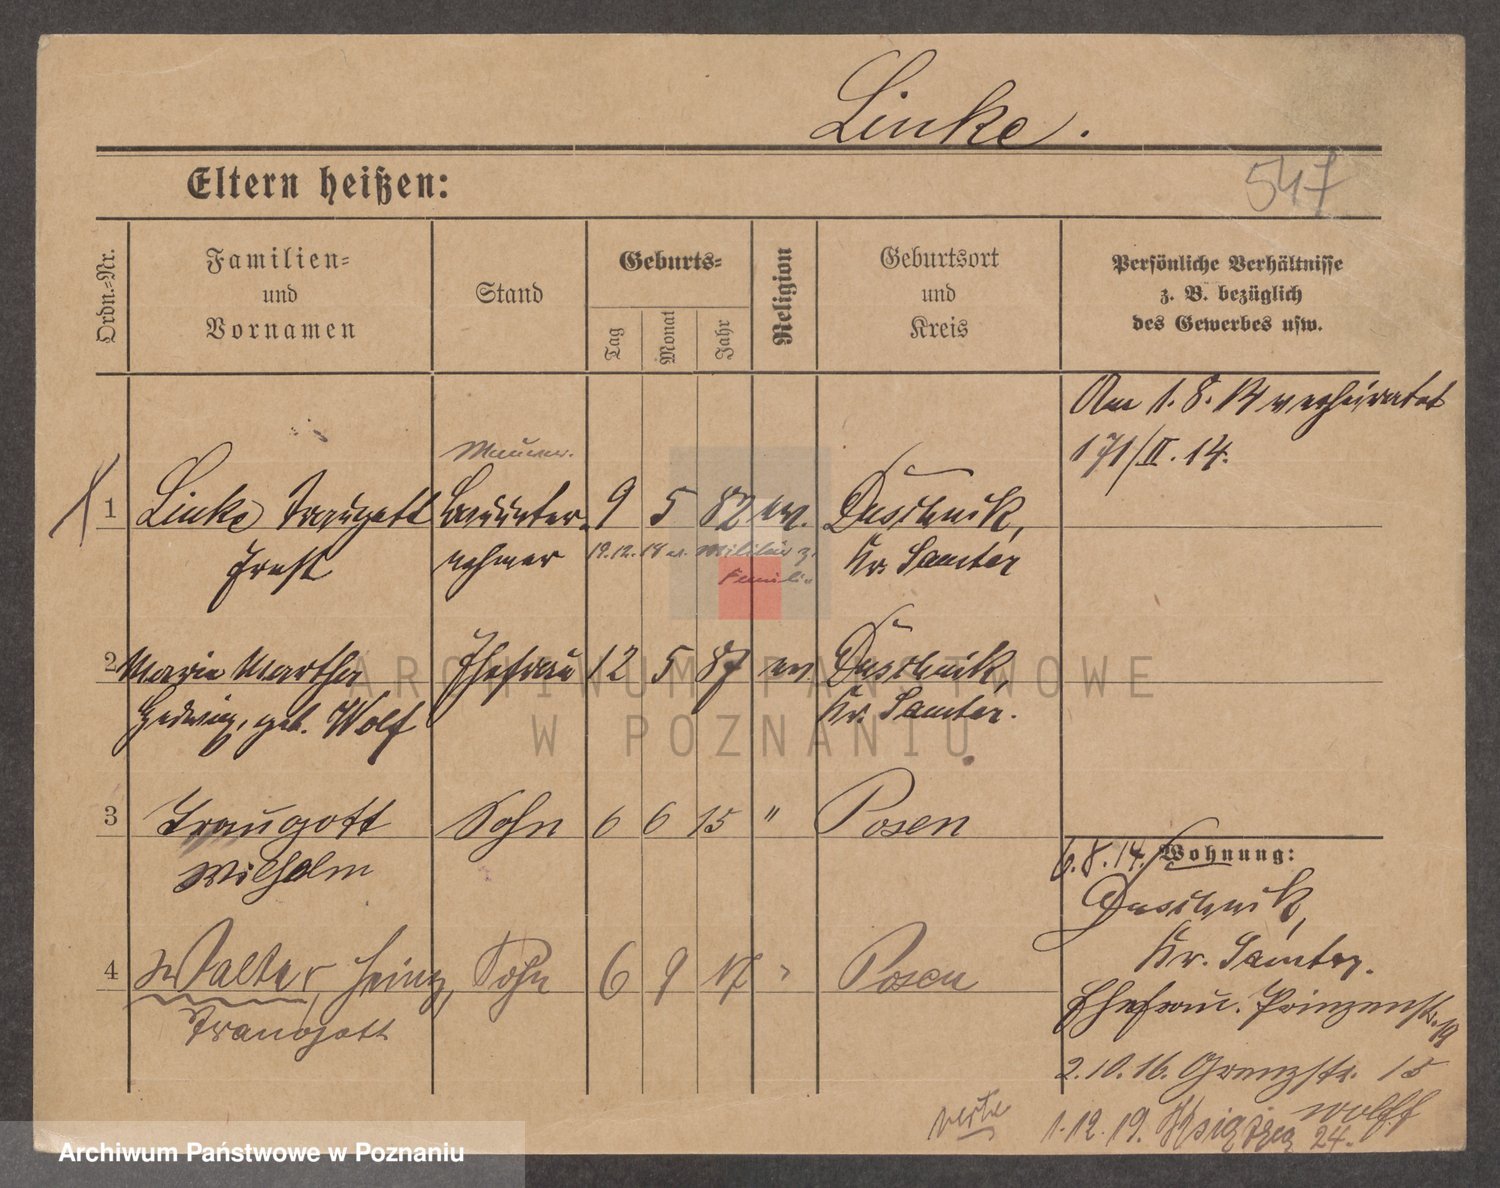 Linke.
547
Eltern heißen:
Ordn.-Nr.
Familien-
und
Vornamen
Stand
Geburts-
Tag
Monat
Jahr
Religion
Geburtsort
und
Kreis
Persönliche Verhältnisse
z. B. bezüglich
des Gewerbes usw.
Am 1. 8. 14 verheiratet
171/II. 14.
Maurer.
1 Linke Traugott Bauunter- 9 5 82 ev. Duschnik,
Ernst nehmer 19.12.18 v. Militär z. Kr. Samter
Familie
2 Marie Martha Ehefrau 12 5 87 ev. Duschnik,
Hedwig, geb. Wolf Kr. Samter.
3 Traugott Sohn 6 6 15 " Posen
Wilhelm
6.8.14. Wohnung:
Duschnik,
4 Walter, Heinz, Sohn 6 9 17 " Posen
Traugott
Kr. Samter.
Ehefrau. Prinzenstr. 19
2.10.16. Grenzstr. 15
Wolff
verte
1.12.19. 24.
ARCHIWUM PAŃSTWOWE
W POZNANIU
Archiwum Państwowe w Poznaniu